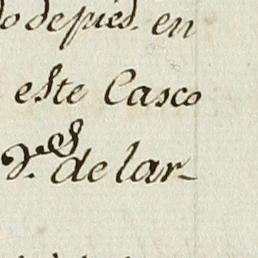 do de pied. en
este Casco
v.es de lar-